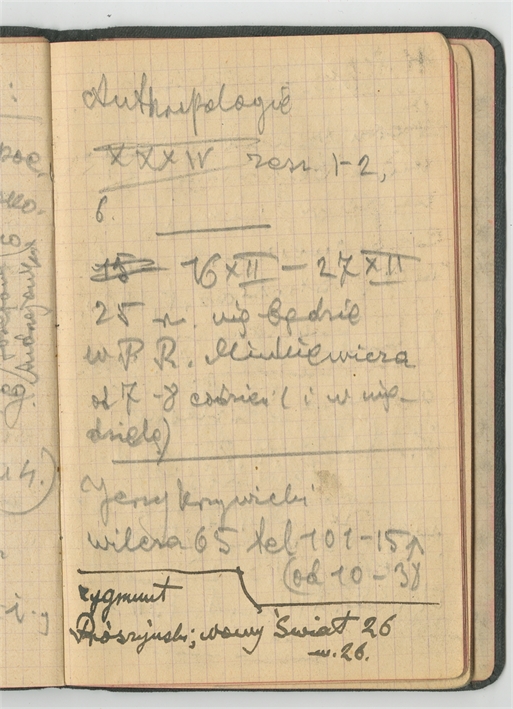 Anthropologie
XXXIV zesz. 1-2,
6.
15 16 XII — 27 XII
25 r. nie będzie
w P.R. Minkiewicza
od 7-8 codzien (i w nie-
dzielę)
Jerzy Krzywicki
wilcza 65 tel 101-15
(od 10 - 3)
zygmunt
nowy Świat 26
m. 26.
14.)